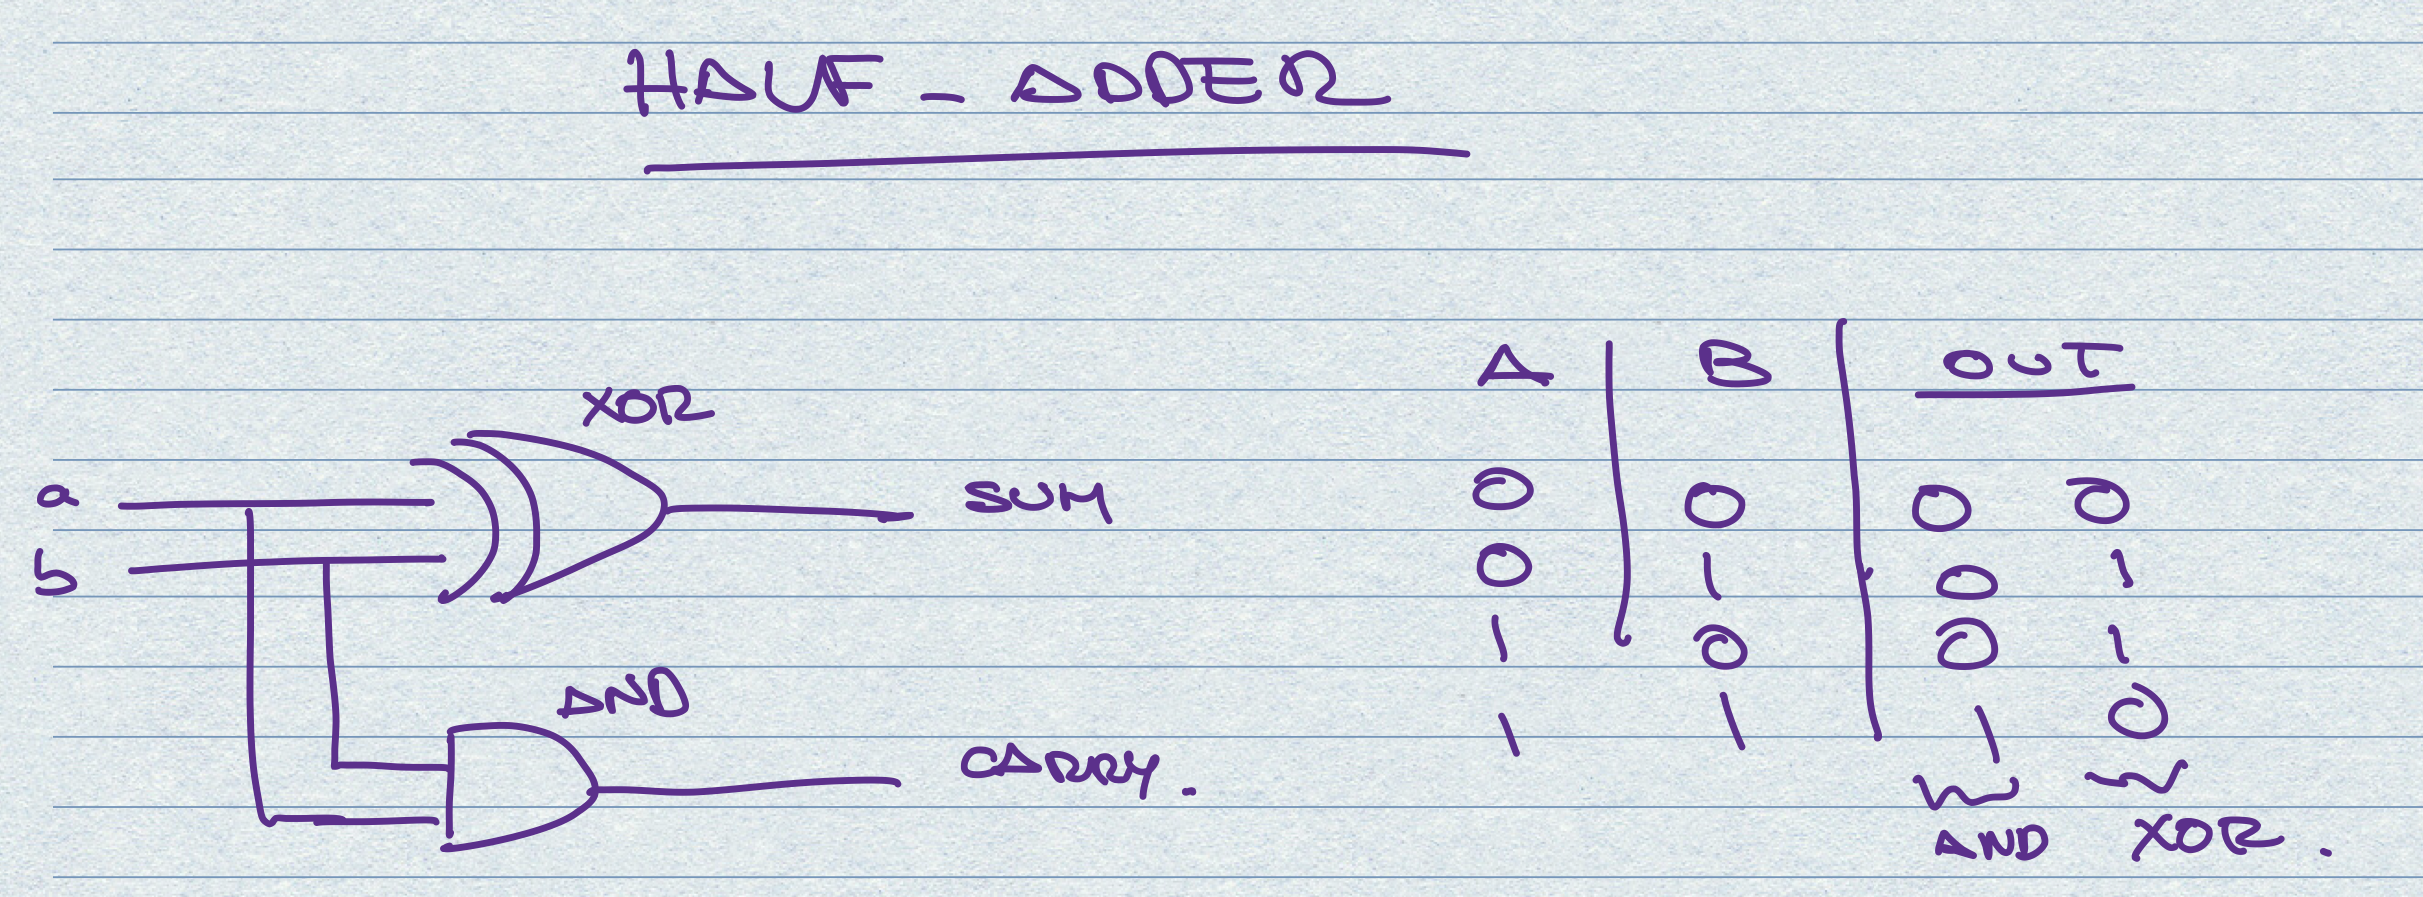 HALF - ADDER
XOR
a
SUM
b
AND
CARRY.
A | B | OUT
0 0 0 0
0 1 0 1
1 0 0 1
1 1 1 0
AND XOR.